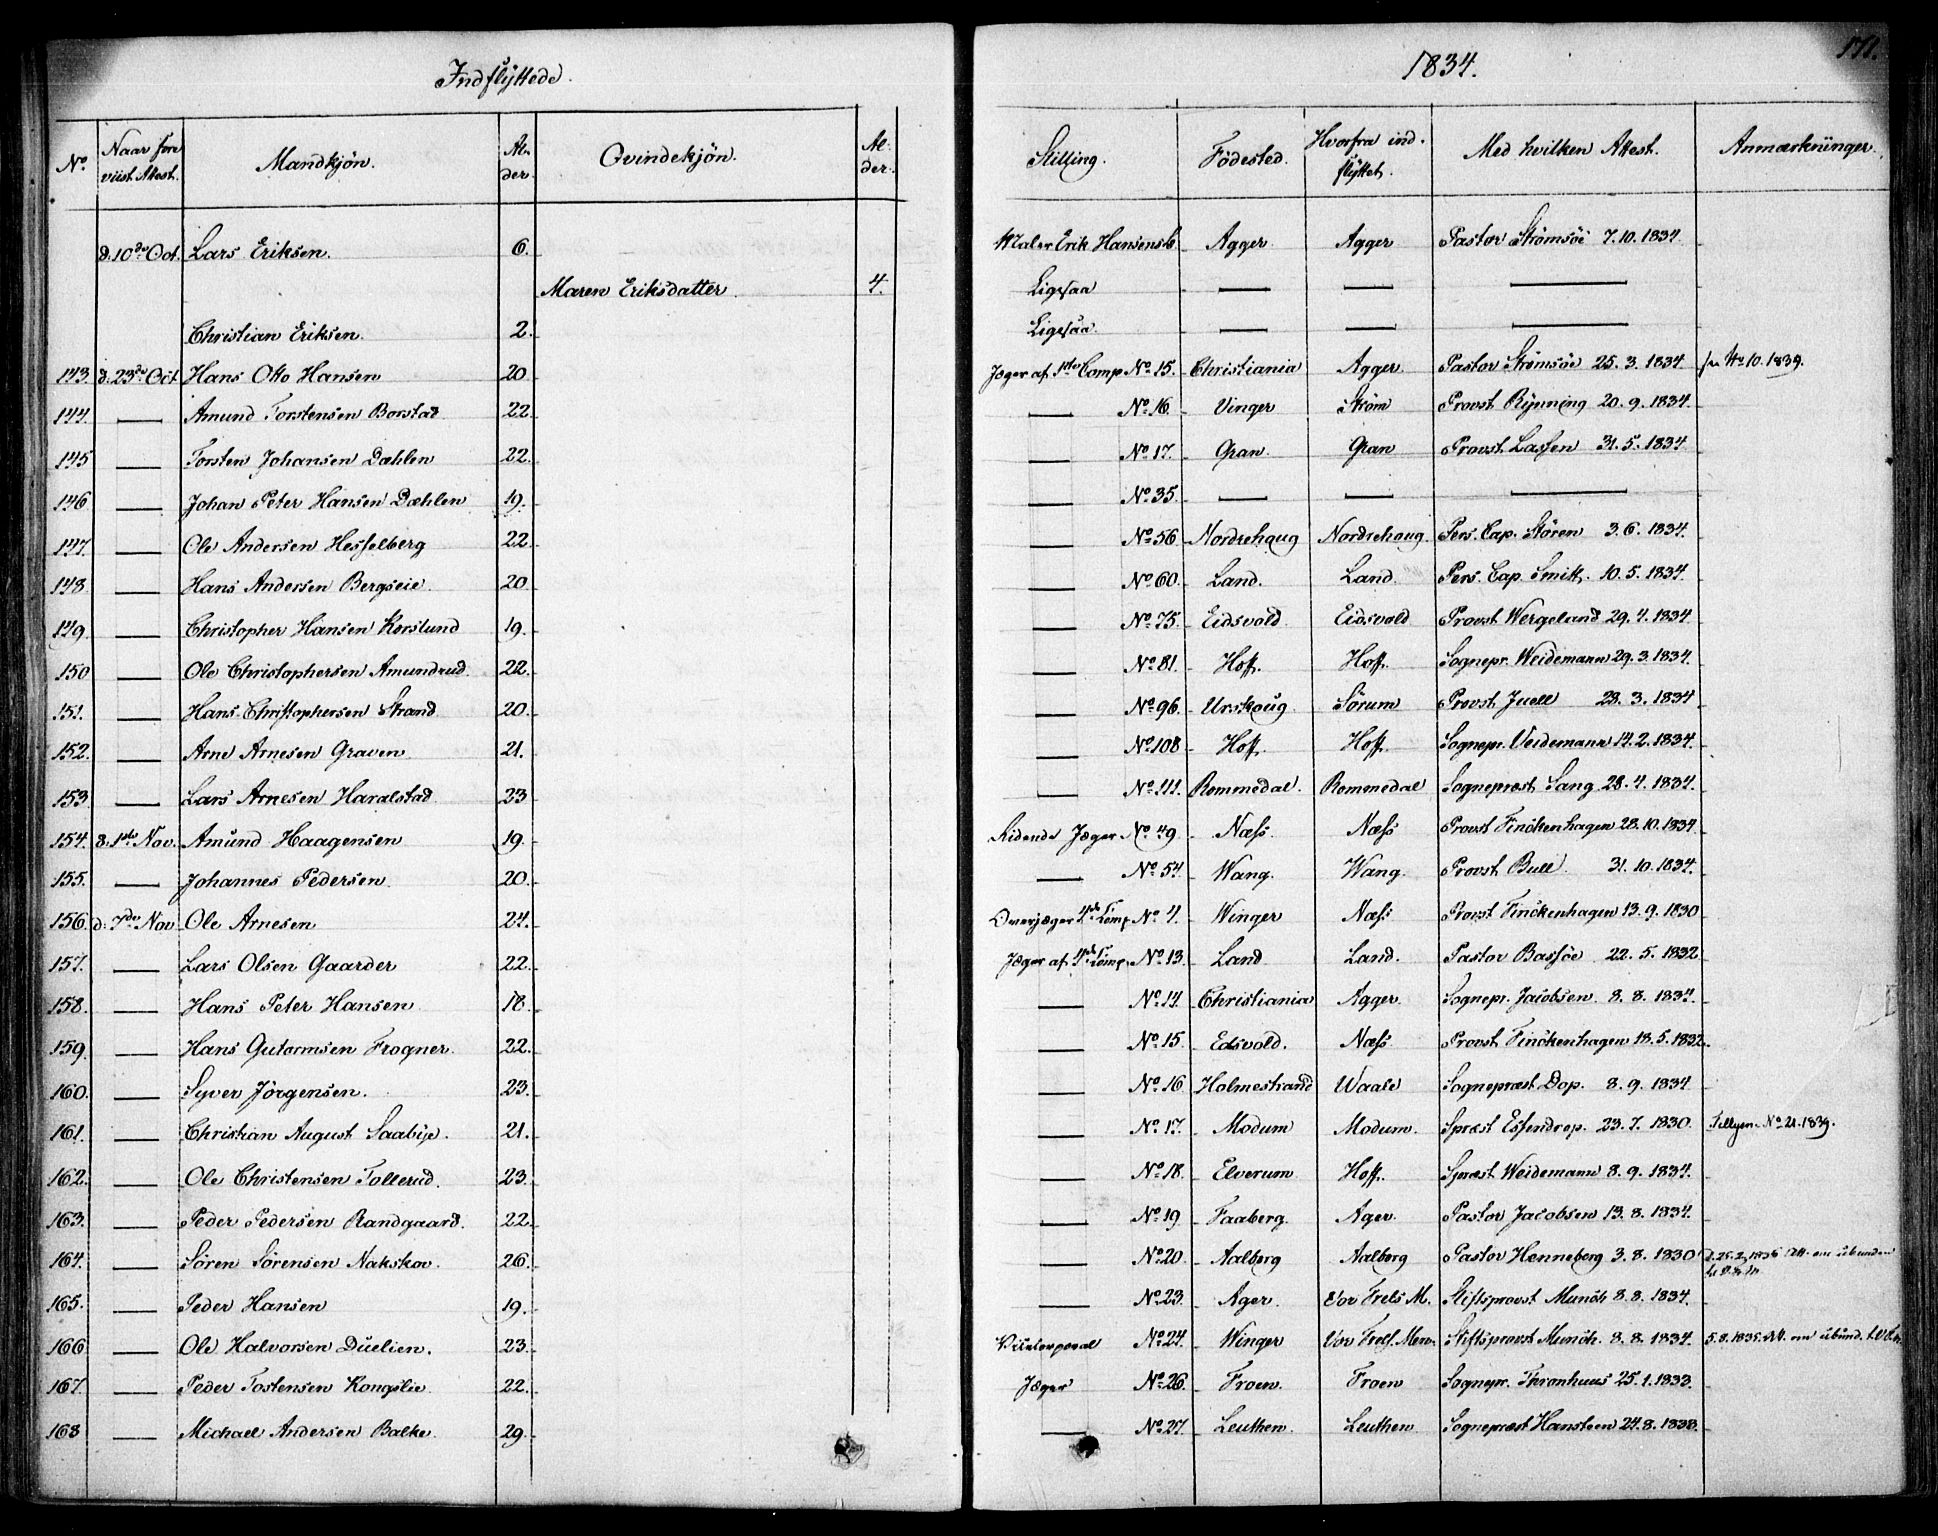 Indflyttede.
1834.
171.
No
Naar fore
viist Attest.
Mandkjön.
Al-
der
Qvindekjön.
Al-
der.
Stilling.
Födested.
Hvorfra ind-
flyttet.
Med hvilken Attest.
Anmærkninger.
d. 10de Oct. Lars Eriksen. 6. Maler Erik Hansens B Agger Agger Pastor Strömsöe 7.10.1834
Maren Eriksdatter 4. Ligesaa — — —
Christian Eriksen. 2. Ligesaa. — — —
143. d. 23de Oct Hans Otto Hansen 20 Jæger af 1ste Comp No 15. Christiania Agger Pastor Strömsöe 25.3.1834 No 10. 1839.
144. — Amund Torstensen Borstad 22 — No 16. Vinger Ström Provst Rynning 20.9.1834.
145 — Torsten Johansen Dæhlen 22. — No 17. Gran Gran Provst Lassen 31.5.1834
146 — Johan Peter Hansen Dæhlen 19. — No 35. — — —
147. — Ole Andersen Hesselberg 22 — No 56 Nordrehaug Nordrehoug. Pers. Cap. Stören 3.6.1834.
148. — Hans Andersen Bergseie. 20 — No 60. Land. Land Pers. Cap. Smitt. 10.5.1834.
149. — Christopher Hansen Korslund 19. — No 75. Eidsvold Eidsvold Provst Wergeland 29.4.1834
150 — Ole Christophersen Amundrud. 22. — No 81. Hoff. Hoff. Sognepr. Weidemann 29.3.1834.
151. — Hans Christophersen Strand 20. — No 96. Urskoug Sörum Provst Juell 28.3.1834
152. — Arne Arnesen Graven 21. — No 108 Hoff. Hoff. Sognepr. Veidemann 14.2.1834.
153 — Lars Arnesen Haralstad 23 — No 111. Rommedal. Rommedal Sognepræst Sang 28.4.1834.
154. d. 1ste Nov. Amund Haagensen 19. Ridende Jæger No 49 Næss. Næss Provst Finckenhagen 28.10.1834
155. — Johannes Pedersen 20. — No 54. Wang. Wang. Provst Bull. 31.10.1834.
156. d. 7de Nov Ole Arnesen 24. Overjæger 4de Comp No 4. Winger Næss Provst Finckenhagen 13.9.1830
157. — Lars Olsen Gaarder 22. Jæger af 4de Comp. No 13. Land Land. Pastor Bassöe 22.5.1832
158. — Hans Peter Hansen 18. — No 14. Christiania Agger. Sognepr. Jacobsen 8.8.1834.
159. — Hans Gutormsen Frogner. 22. — No 15. Edsvold. Næss Provst Finckenhagen 18.5.1832.
160. — Syver Jörgensen. 23. — No 16 Holmestrand Waale Sognepræst Dop. 8.9.1834
161. — Christian August Saabye. 21. — No 17. Modum Modum. Spræst Essendrop. 23.7.1830 No 21. 1839.
162. — Ole Christensen Tollerud. 23. — No 18. Elverum Hoff. Spræst Weidemann 8.9.1834.
163. — Peder Pedersen Randgaard. 22. — No 19 Faaberg. Ager. Pastor Jacobsen 13.8.1834.
164. — Sören Sörensen Nakskov. 26. — No 20. Aalborg Aalborg Pastor Henneberg 3.8.1830 Att. om ubunden
165. — Peder Hansen 19. — No 23. Ager. Vor Frels M. Stiftsprovst Munch 8.8.1834.
166 — Ole Halvorsen Duelien. 23. Vicekorporal No 24. Winger Vor Frels. Men. Stiftsprovst Munch. 8.8.1834. 5.8.1835. Att. om ubund.
167. — Peder Tostensen Kongslie. 22. Jæger No 26. Froen. Froen Sognepr. Thronhuus 25.1.1833.
168 — Michael Andersen Balke. 29. — No 27. Leuthen Leuthen Sognepræst Hansteen 24.8.1833.